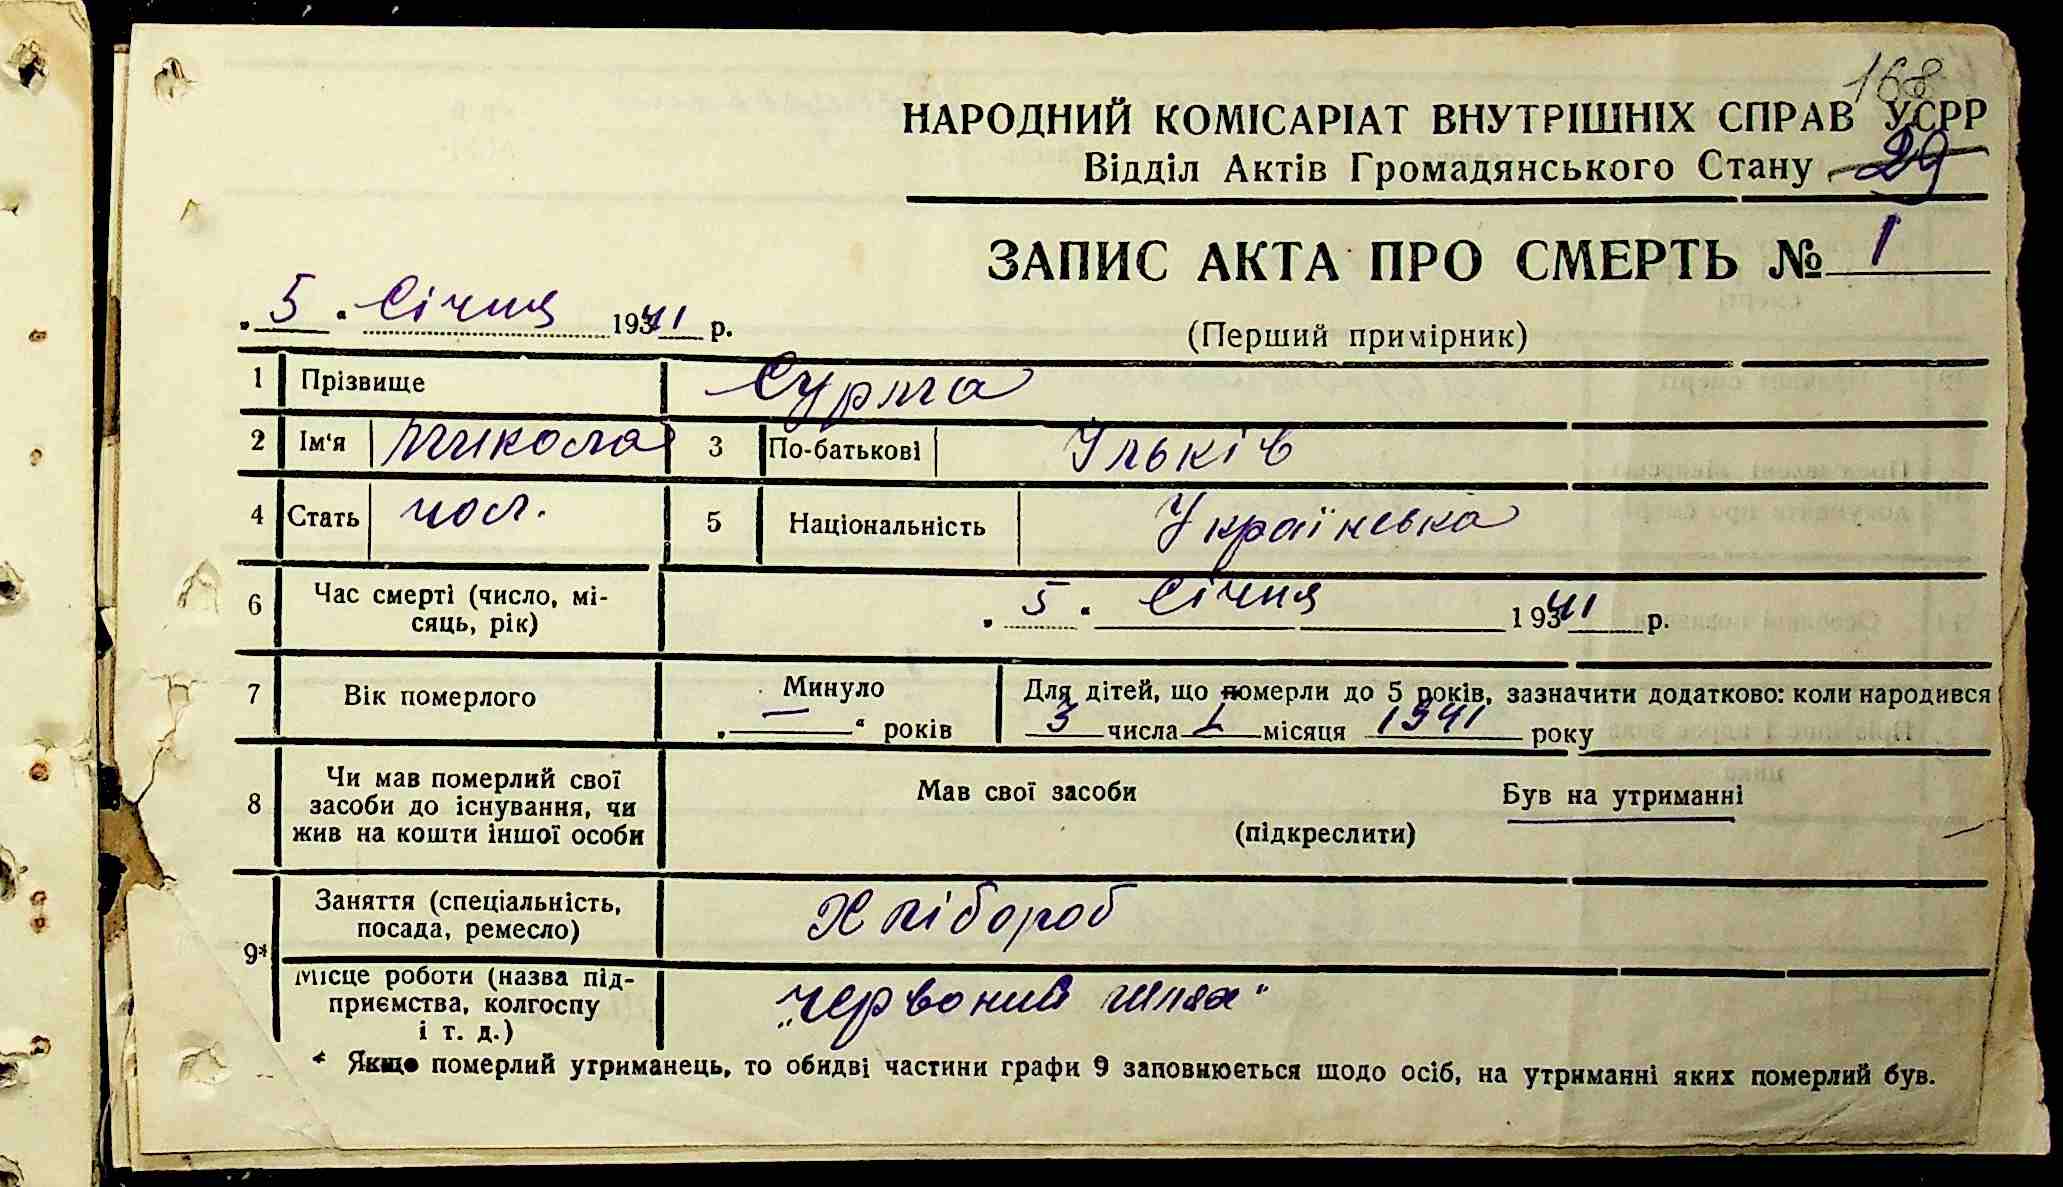 168
НАРОДНИЙ КОМІСАРІАТ ВНУТРІШНІХ СПРАВ УСРР
Відділ Актів Громадянського Стану 29
ЗАПИС АКТА ПРО СМЕРТЬ № 1
„5“ Січня 1941 р.
(Перший примірник)
1 Прізвище Сурма
2 Ім'я Микола 3 По-батькові Ільків
4 Стать чол. 5 Національність Українська
6 Час смерті (число, мі-
сяць, рік)
„5“ Січня 1941 р.
7 Вік померлого
Минуло
„—“ років
Для дітей, що померли до 5 років, зазначити додатково: коли народився
3 числа 1 місяця 1941 року
8 Чи мав померлий свої
засоби до існування, чи
жив на кошти іншої особи
Мав свої засоби Був на утриманні
(підкреслити)
9* Заняття (спеціальність,
посада, ремесло)
Хлібороб
Місце роботи (назва під-
приємства, колгоспу
і т. д.)
„Червоний шлях"
* Якщо померлий утриманець, то обидві частини графи 9 заповнюється щодо осіб, на утриманні яких померлий був.